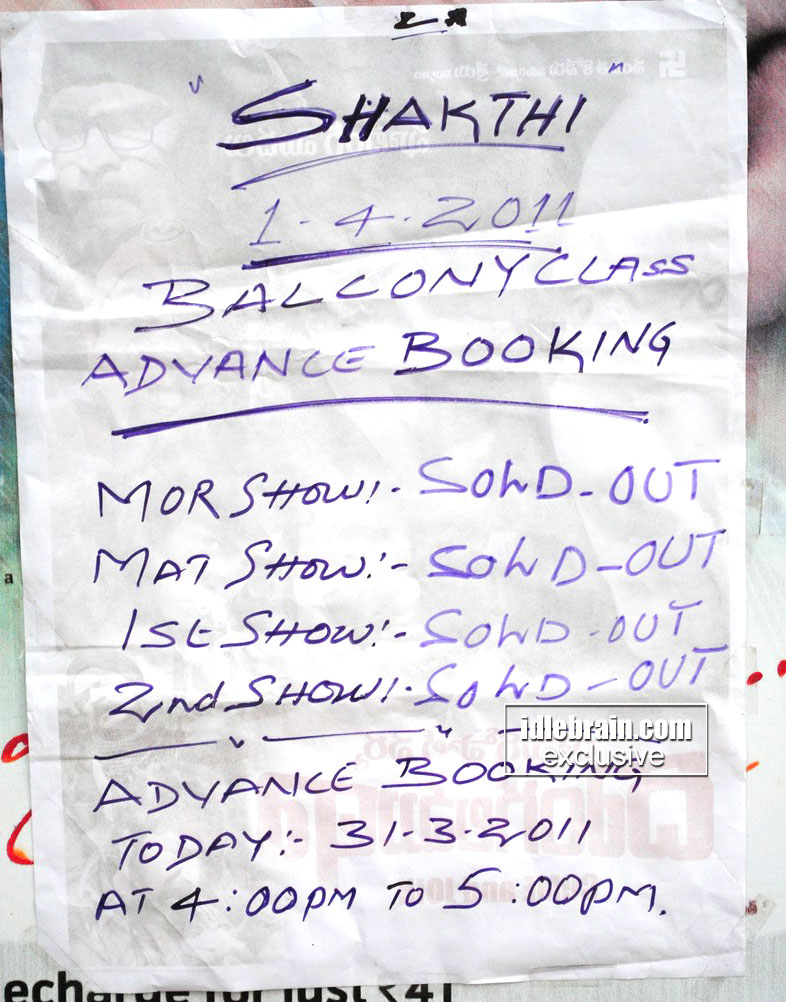 "SHAKTHI"
1-4-2011
BALCONY CLASS
ADVANCE BOOKING
MOR SHOW:- SOLD-OUT
MAT SHOW:- SOLD-OUT
1St SHOW:- SOLD-OUT
2nd SHOW:- SOLD-OUT
idlebrain.com
exclusive
ADVANCE BOOKING
TODAY:- 31-3-2011
AT 4:00PM TO 5:00PM.
echarge for just ₹41